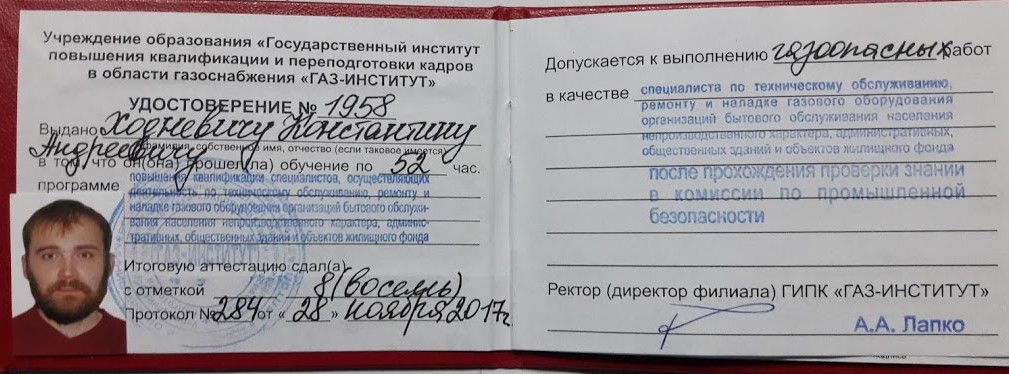 Учреждение образования «Государственный институт
повышения квалификации и переподготовки кадров
в области газоснабжения «ГАЗ-ИНСТИТУТ»
УДОСТОВЕРЕНИЕ № 1958
Выдано Ходневичу Константину
Андреевичу
фамилия, собственное имя, отчество (если таковое имеется)
в том, что он(она) прошел(ла) обучение по 52 час.
программе повышения квалификации специалистов, осуществляющих
деятельность по техническому обслуживанию, ремонту и
наладке газового оборудования организаций бытового обслужи-
вания населения непроизводственного характера, админис-
тративных, общественных зданий и объектов жилищного фонда
ГАЗ-ИНСТИТУТ
Итоговую аттестацию сдал(а)
с отметкой 8 (восемь)
Протокол № 284 от « 28 » ноября 2017г.
Допускается к выполнению газоопасных работ
в качестве специалиста по техническому обслуживанию,
ремонту и наладке газового оборудования
организаций бытового обслуживания населения
непроизводственного характера, административных,
общественных зданий и объектов жилищного фонда
после прохождения проверки знаний
в комиссии по промышленной
безопасности
Ректор (директор филиала) ГИПК «ГАЗ-ИНСТИТУТ»
А.А. Лапко